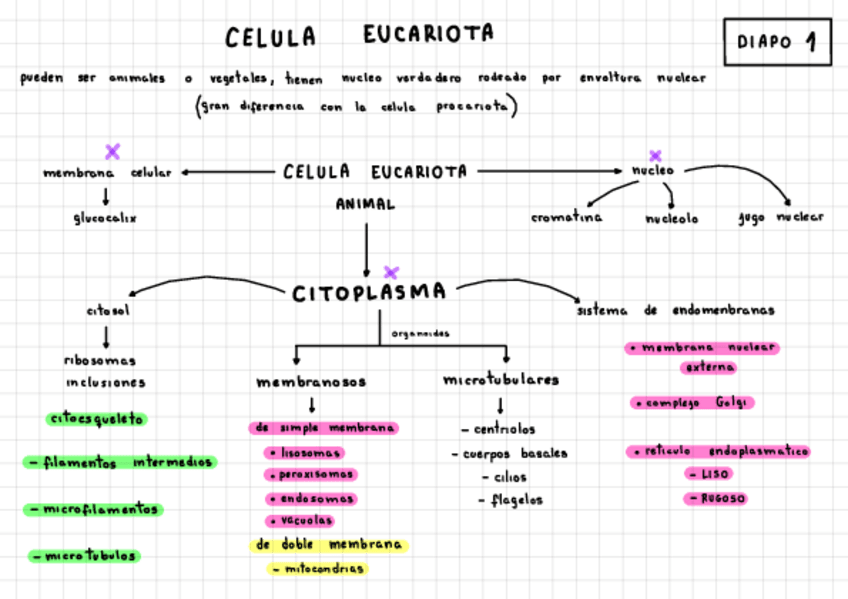 CELULA EUCARIOTA
DIAPO 1
pueden ser animales o vegetales, tienen nucleo verdadero rodeado por envoltura nuclear
(gran diferencia con la celula procariota)
membrana celular
CELULA EUCARIOTA
nucleo
glucocalix
ANIMAL
cromatina
nucleolo
jugo nuclear
CITOPLASMA
citosol
sistema de endomenbranas
organoides
ribosomas
inclusiones
membranosos
microtubulares
• membrana nuclear
externa
• complejo Golgi
• reticulo endoplasmatico
- LISO
- RUGOSO
citoesqueleto
- filamentos intermedios
- microfilamentos
- microtubulos
de simple membrana
• lisosomas
• peroxisomas
• endosomas
• vacuolas
de doble membrana
- mitocondrias
- centriolos
- cuerpos basales
- cilios
- flagelos